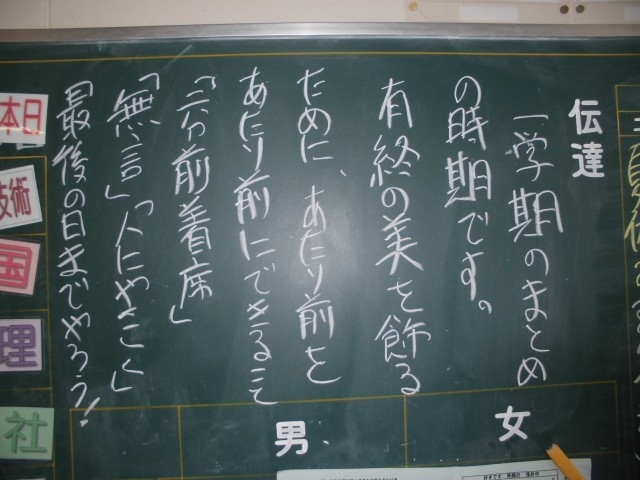 伝達
一学期のまとめ
の時期です。
有終の美を飾る
ために、あたり前を
あたり前にできること
「三分前着席」
「無言」「人にやさしく」
「最後の日までやろう!
女
男
本日
技術
国
理
社